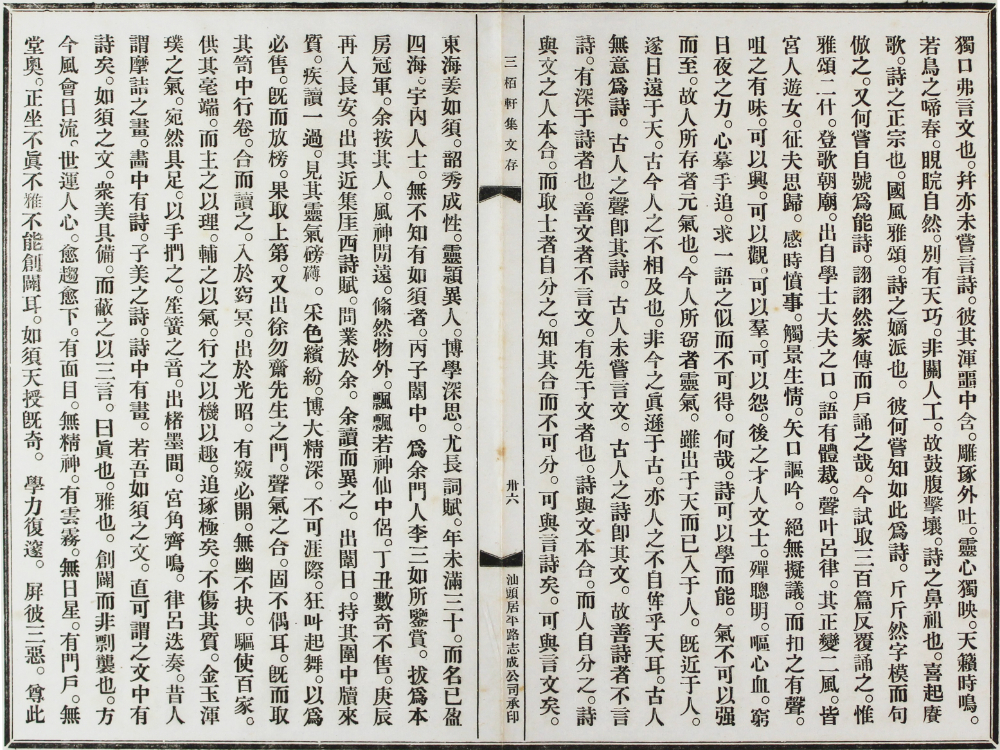 獨口弗言文也。幷亦未嘗言詩。彼其渾噩中含。雕琢外吐。靈心獨映。天籟時鳴。
若鳥之啼春。睍睆自然。別有天巧。非關人工。故鼓腹擊壤。詩之鼻祖也。喜起賡
歌。詩之正宗也。國風雅頌。詩之嫡派也。彼何嘗知如此爲詩。斤斤然字模而句
倣之。又何嘗自號爲能詩。詡詡然家傳而戶誦之哉。今試取三百篇反覆誦之。惟
雅頌二什。登歌朝廟。出自學士大夫之口。語有體裁。聲叶呂律。其正變二風。皆
宮人遊女。征夫思歸。感時憤事。觸景生情。矢口謳吟。絕無擬議。而扣之有聲。
咀之有味。可以興。可以觀。可以羣。可以怨。後之才人文士。殫聰明。嘔心血。窮
日夜之力。心摹手追。求一語之似而不可得。何哉。詩可以學而能。氣不可以强
而至。故人所存者元氣也。今人所窃者靈氣。雖出于天而已入于人。旣近于人。
遂日遠于天。古今人之不相及也。非今之眞遜于古。亦人之不自侔乎天耳。古人
無意爲詩。古人之聲卽其詩。古人未嘗言文。古人之詩卽其文。故善詩者不言
詩。有深于詩者也。善文者不言文。有先于文者也。詩與文本合。而人自分之。詩
與文之人本合。而取士者自分之。知其合而不可分。可與言詩矣。可與言文矣。
三栢軒集文存
卅六
汕頭居平路志成公司承印
東海姜如須。韶秀成性。靈穎異人。博學深思。尤長詞賦。年未滿三十。而名已盈
四海。宇內人士。無不知有如須者。丙子闈中。爲余門人李三如所鑒賞。拔爲本
房冠軍。余按其人。風神閒遠。翛然物外。飄飄若神仙中侶。丁丑數奇不售。庚辰
再入長安。出其近集厓西詩賦。問業於余。余讀而異之。出闈日。持其闈中牘來
質。疾讀一過。見其靈氣磅礴。采色繽紛。博大精深。不可涯際。狂叫起舞。以爲
必售。旣而放榜。果取上第。又出徐勿齋先生之門。聲氣之合。固不偶耳。旣而取
其笥中行卷。合而讀之。入於窈冥。出於光昭。有竅必開。無幽不抉。驅使百家。
供其毫端。而主之以理。輔之以氣。行之以機以趣。追琢極矣。不傷其質。金玉渾
璞之氣。宛然具足。以手捫之。笙簧之音。出楮墨間。宮角齊鳴。律呂迭奏。昔人
謂摩詰之畫。畵中有詩。子美之詩。詩中有畫。若吾如須之文。直可謂之文中有
詩矣。如須之文。衆美具備。而蔽之以三言。曰眞也。雅也。創闢而非剽襲也。方
今風會日流。世運人心。愈趨愈下。有面目。無精神。有雲霧。無日星。有門戶。無
堂奧。正坐不眞不雅不能創闢耳。如須天授旣奇。學力復邃。屏彼三惡。尊此